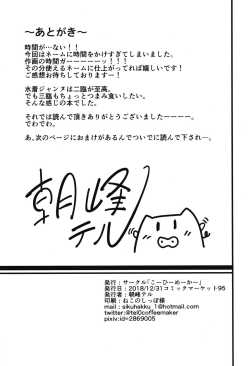 ～あとがき～
時間が…ない！！
今回はネームに時間をかけすぎてしまいました。
作画の時間ガーーーーーッ！！！
その分使えるネームに仕上がってれば嬉しいです！
ご感想お待ちしておりますー！
水着ジャンヌは二臨が至高。
でも三臨もちょっとつまみ食いしたい。
そんな感じの本でした。
それでは読んで頂きありがとうございましたーーー。
でわでわ。
あ、次のページにおまけがあるんでついでに読んで下されー。
朝峰
テル
発行：サークル「こーひーめーかー」
発行日：2018/12/31コミックマーケット95
発行者：朝峰テル
印刷：ねこのしっぽ様
mail：sikuhakku_1@hotmail.com
twitter:@tel0coffeemaker
pixiv:id=2869005